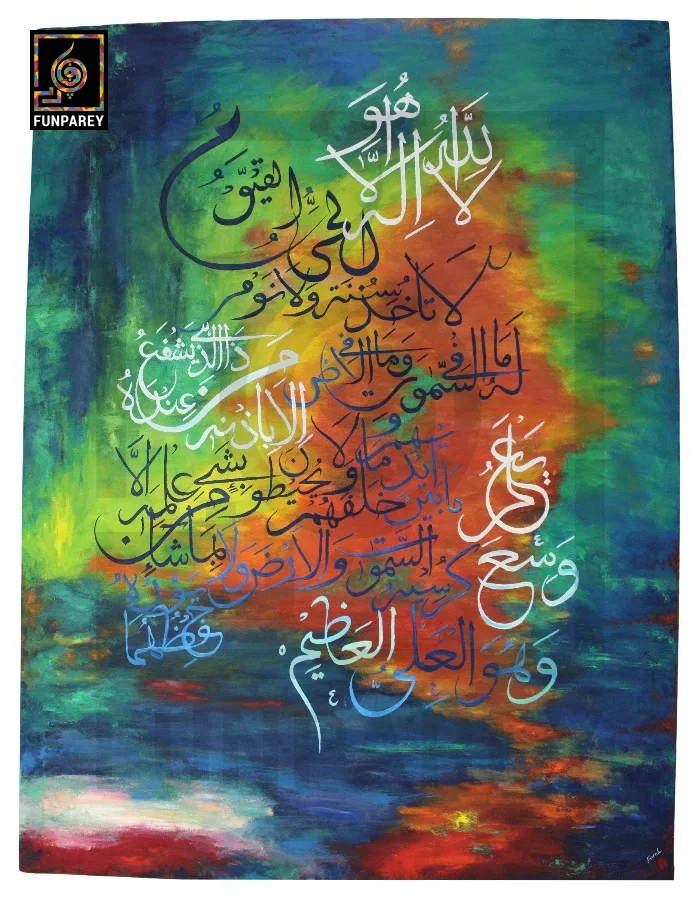 FUNPAREY
اللّٰه لا إله إلّا هُوَ
الحيُّ القيّومُ
لا تأخذه سِنَة ولا نوم
لَهُ ما في السّمٰوٰت وما في الارض
من ذا الذي يشفَعُ عندهُ إلا باذنه
يَعلمُ ما بين ايديهم وما خلفهم ولا يحيطون بشيء من علمه إلّا بما شاء
وَسِعَ كرسيه السّمٰوٰت والارض ولا يَؤُدُه حِفظُهما
وَهُوَ العَليُّ العَظيم